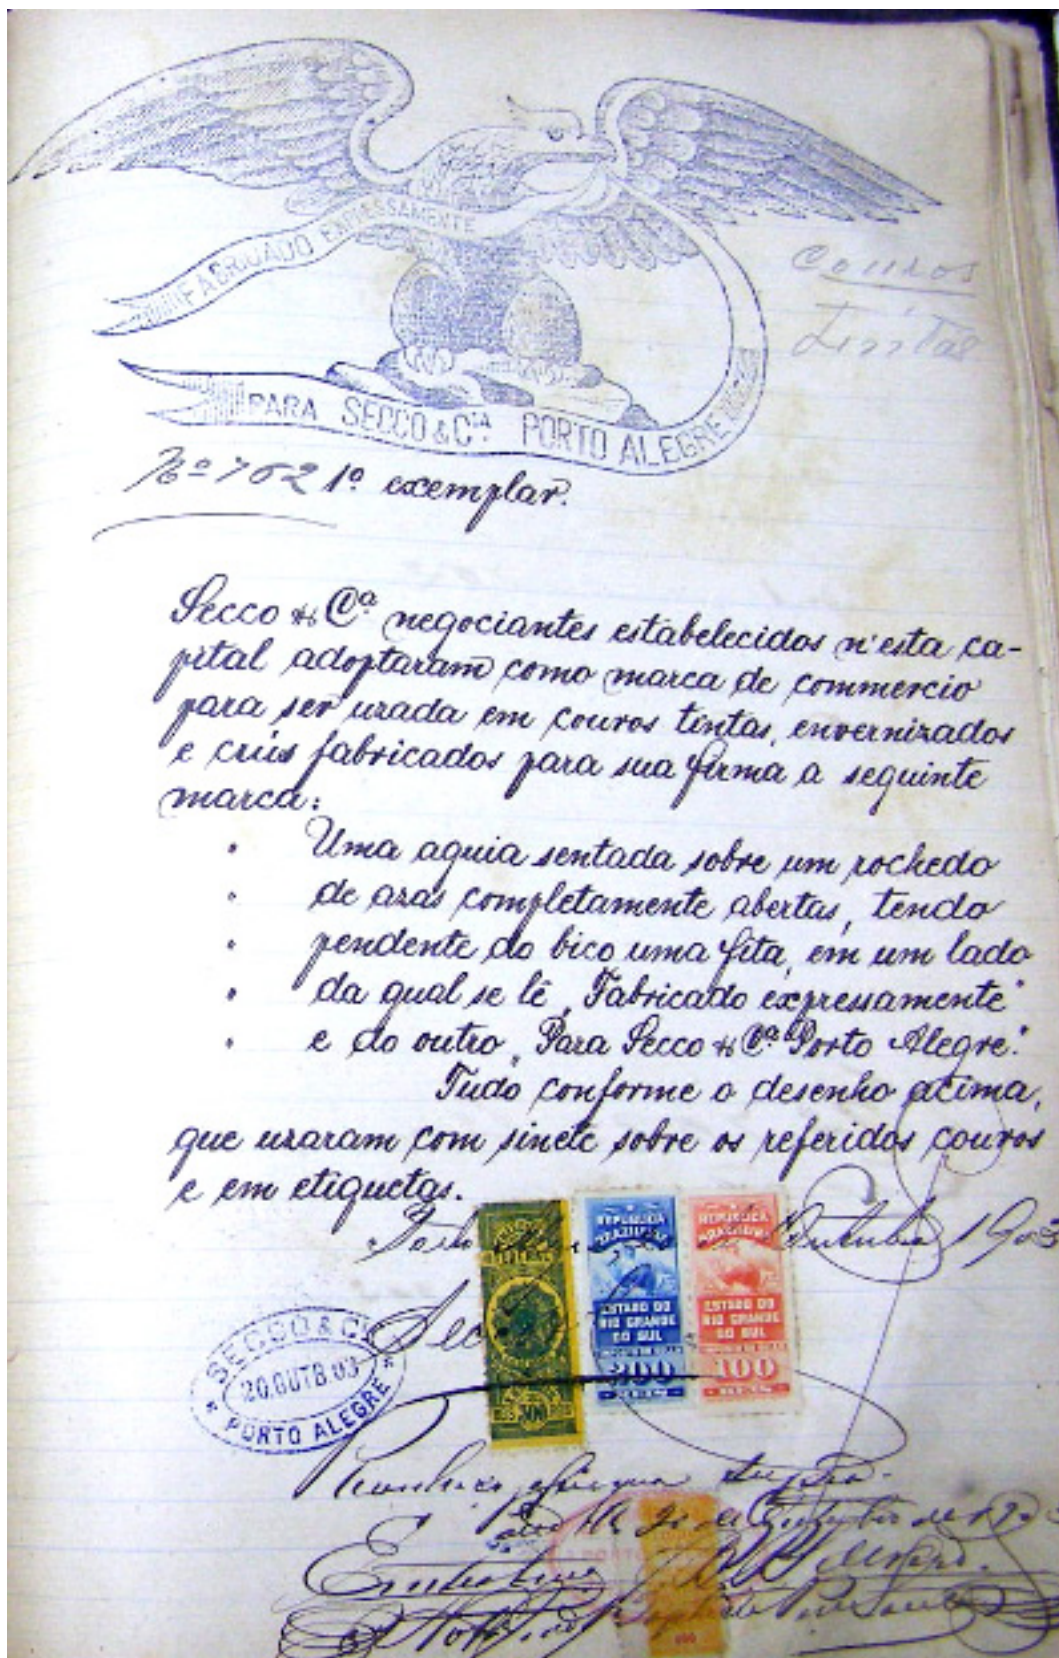 FABRICADO EXPRESSAMENTE
PARA SECCO & Cᴵᴬ. PORTO ALEGRE
Couros
Nº 762 1º exemplar.
Secco & Cª negociantes estabelecidos n'esta ca-
pital adoptaram como marca de commercio
para ser uzada em couros tintas, envernizados
e crús fabricados para sua firma a seguinte
marca:
" Uma aguia sentada sobre um rochedo
" de azas completamente abertas, tendo
" pendente do bico uma fita, em um lado
" da qual se lê „Fabricado expressamente"
" e do outro „Para Secco & Cª Porto Alegre."
Tudo conforme o desenho acima,
que uzaram com sinete sobre os referidos couros
e em etiquetas.
Outubro 1903
REPUBLICA BRAZILEIRA
ESTADO DO
RIO GRANDE
DO SUL
200
REPUBLICA BRAZILEIRA
ESTADO DO
RIO GRANDE
DO SUL
100
SECCO & Cᴬ
20.OUTB.03
PORTO ALEGRE
firma supra.
de Outubro de